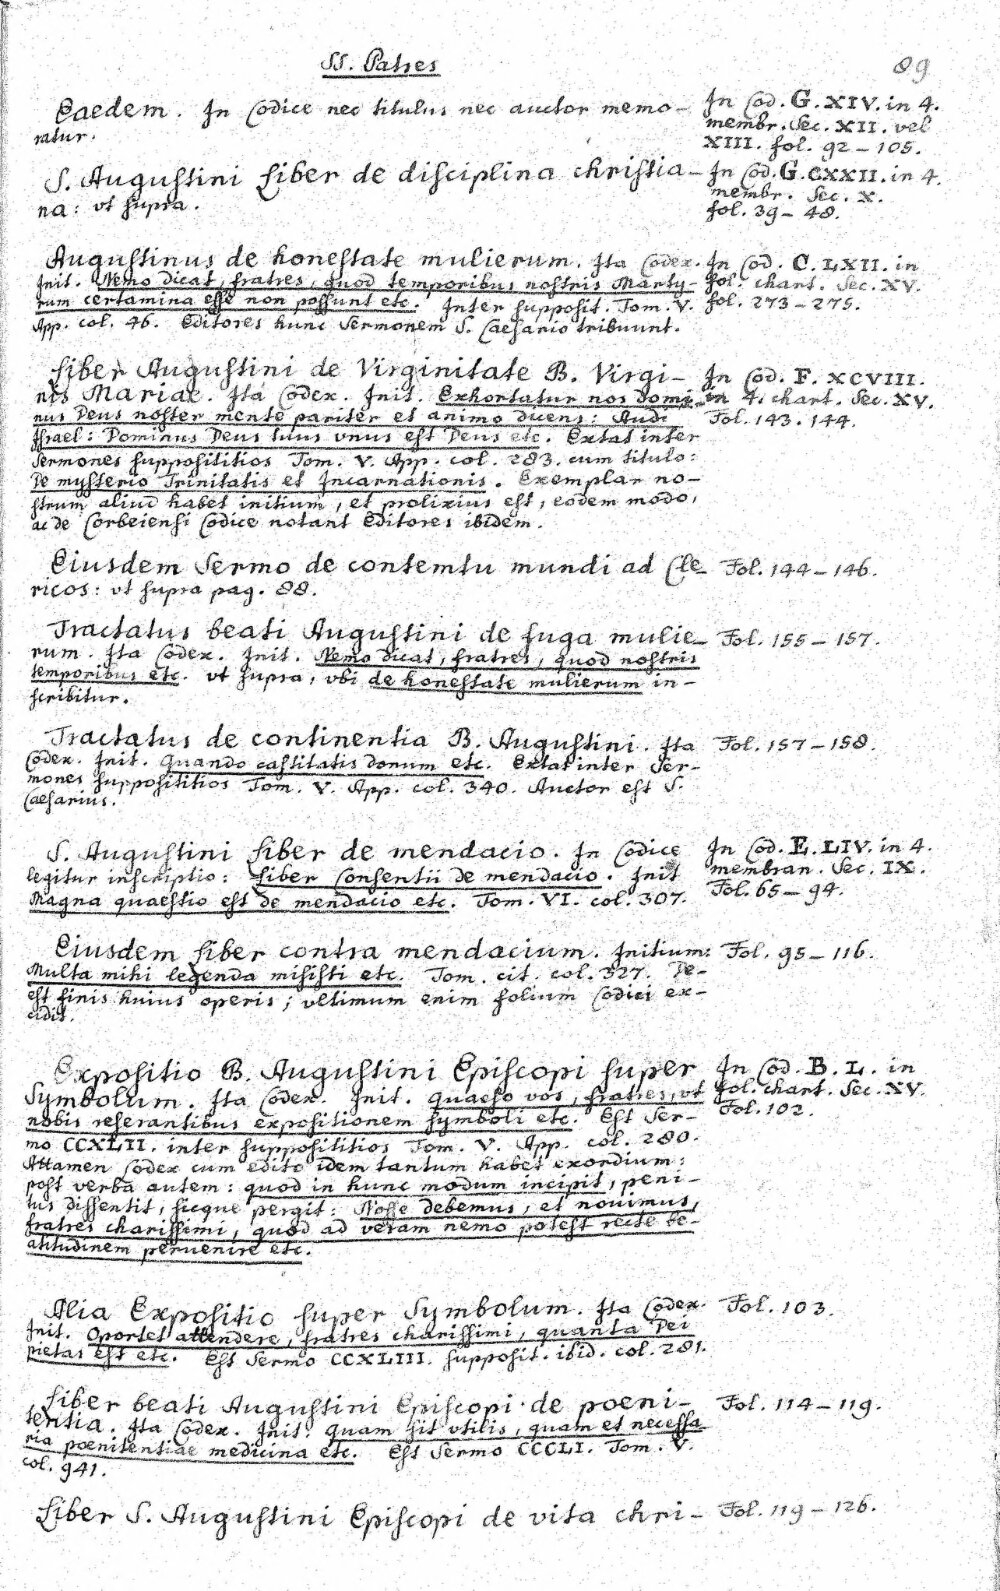 SS. Patres
89
Eaedem. In Codice nec titulus nec auctor memo-
ratur.
In Cod. G. XIV. in 4.
membr. Sec. XII. vel
XIII. fol. 92 – 105.
S. Augustini Liber de disciplina christia-
na: vt supra.
In Cod. G. CXXII. in 4.
membr. Sec. X.
fol. 39 – 48.
Augustinus de honestate mulierum. Ita Codex.
Init. Nemo dicat, fratres, quod temporibus nostris Marty-
rum certamina esse non possunt etc. Inter supposit. Tom. V.
App. col. 46. Editores hunc Sermonem S. Caesario tribuunt.
In Cod. C. LXII. in
fol. chart. Sec. XV.
fol. 273 – 275.
Liber Augustini de Virginitate B. Virgi-
nis Mariae. Ita Codex. Init. Exhortatur nos Domi-
nus Deus noster mente pariter et animo dicens: Audi
Israel: Dominus Deus tuus vnus est Deus etc. Extat inter
Sermones supposititios Tom. V. App. col. 283. cum titulo:
De mysterio Trinitatis et Incarnationis. Exemplar no-
strum aliud habet initium, et prolixius est, eodem modo,
ac de Corbeiensi Codice notant Editores ibidem.
In Cod. F. XCVIII.
in 4. chart. Sec. XV.
Fol. 143. 144.
Eiusdem Sermo de contemtu mundi ad Cle-
ricos: vt supra pag. 88.
Fol. 144 – 146.
Tractatus beati Augustini de fuga mulie-
rum. Ita Codex. Init. Nemo dicat, fratres, quod nostris
temporibus etc. vt supra, vbi de honestate mulierum in-
scribitur.
Fol. 155 – 157.
Tractatus de continentia B. Augustini. Ita
Codex. Init. Quando castitatis donum etc. Extat inter Ser-
mones supposititios Tom. V. App. col. 340. Auctor est S.
Caesarius.
Fol. 157 – 158.
S. Augustini Liber de mendacio. In Codice
legitur inscriptio: Liber Consentii de mendacio. Init
Magna quaestio est de mendacio etc. Tom. VI. col. 307.
In Cod. E. LIV. in 4.
membran. Sec. IX.
Fol. 65 – 94.
Eiusdem Liber contra mendacium. Initium:
Multa mihi legenda misisti etc. Tom. cit. col. 327. De-
est finis huius operis; vltimum enim folium Codici ex-
cidit.
Fol. 95 – 116.
Expositio B. Augustini Episcopi super
Symbolum. Ita Codex. Init. quaeso vos, fratres, vt
nobis reserantibus expositionem symboli etc. Est Ser-
mo CCXLII. inter supposititios Tom. V. App. col. 280.
Attamen Codex cum edito idem tantum habet exordium:
post verba autem: quod in hunc modum incipit, peni-
tus dissentit, sicque pergit: Nosse debemus, et novimus,
fratres charissimi, quod ad veram nemo potest recte be-
atitudinem peruenire etc.
In Cod. B. L. in
fol. chart. Sec. XV.
Fol. 102.
Alia Expositio super Symbolum. Ita Codex.
Init. Oportet attendere, fratres charissimi, quanta Dei
pietas est etc. Est Sermo CCXLIII. supposit. ibid. col. 281.
Fol. 103.
Liber beati Augustini Episcopi de poeni-
tentia. Ita Codex. Init. Quam sit vtilis, quam et necessa
ria poenitentiae medicina etc. Est Sermo CCCLI. Tom. V.
col. 941.
Fol. 114 – 119.
Liber S. Augustini Episcopi de vita chri-
Fol. 119 – 126.